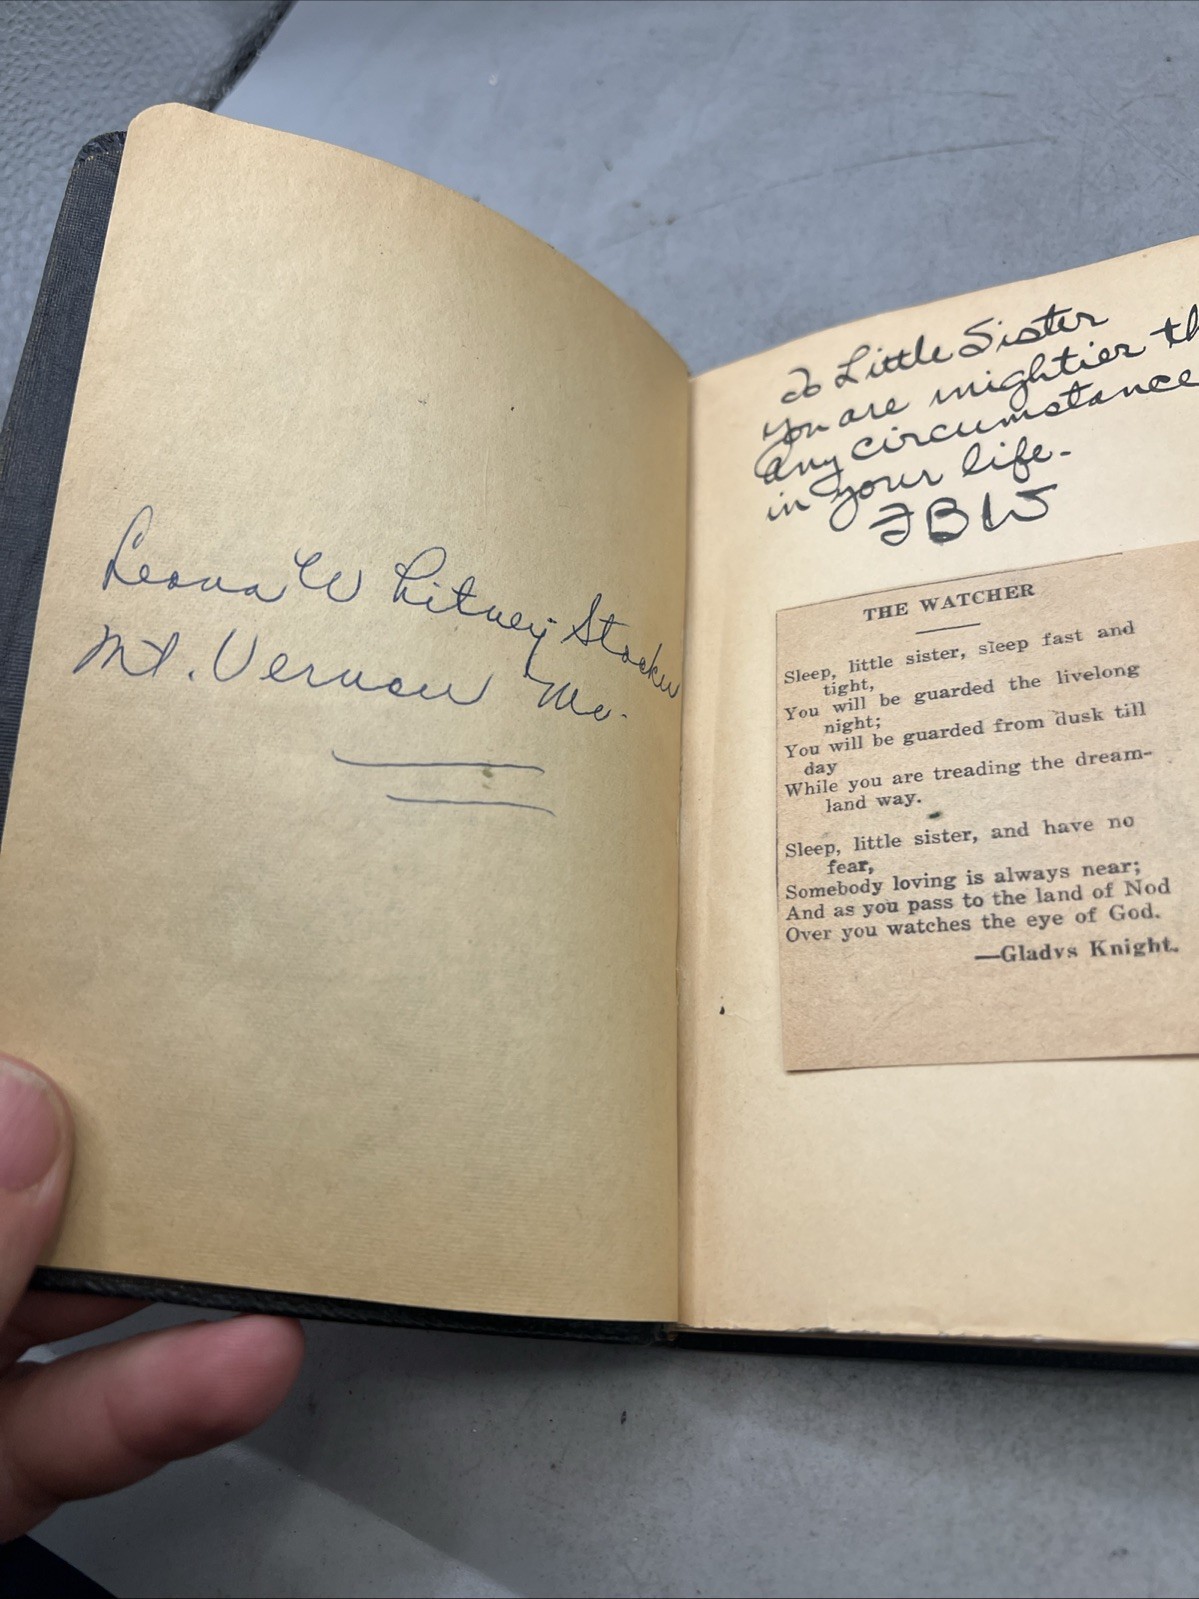 Leona Whitney Stocker
Mt. Vernon Mo.
To Little Sister
You are mightier th
any circumstance
in your life.-
FBW
THE WATCHER
Sleep, little sister, sleep fast and
tight,
You will be guarded the livelong
night;
You will be guarded from dusk till
day
While you are treading the dream-
land way.
Sleep, little sister, and have no
fear,
Somebody loving is always near;
And as you pass to the land of Nod
Over you watches the eye of God.
—Gladys Knight.